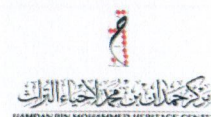 مركز حمدان بن محمد لإحياء التراث
HAMDAN BIN MOHAMMED HERITAGE CENTER